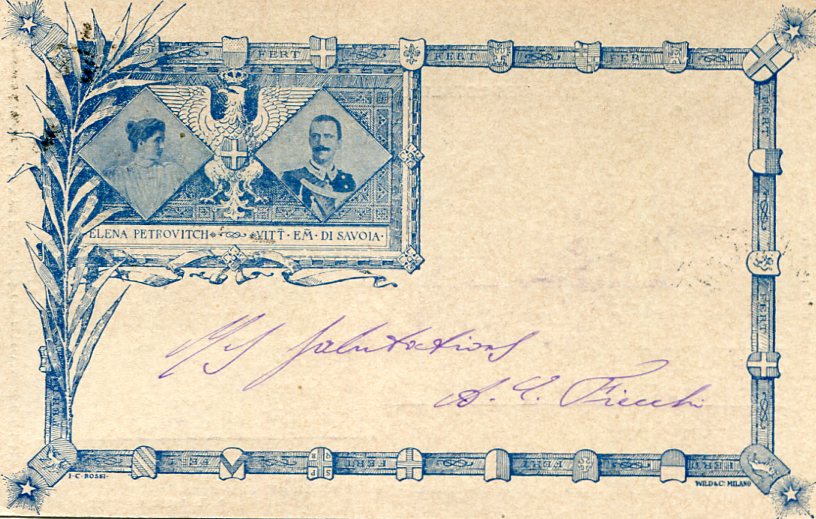 FERT FERT FERT
ELENA PETROVITCH VITT. EM. DI SAVOIA.
FERT
FERT
Mes salutations
A. E.
FERT FERT FERT FERT
I. C. ROSSI.
WILD & C: MILANO